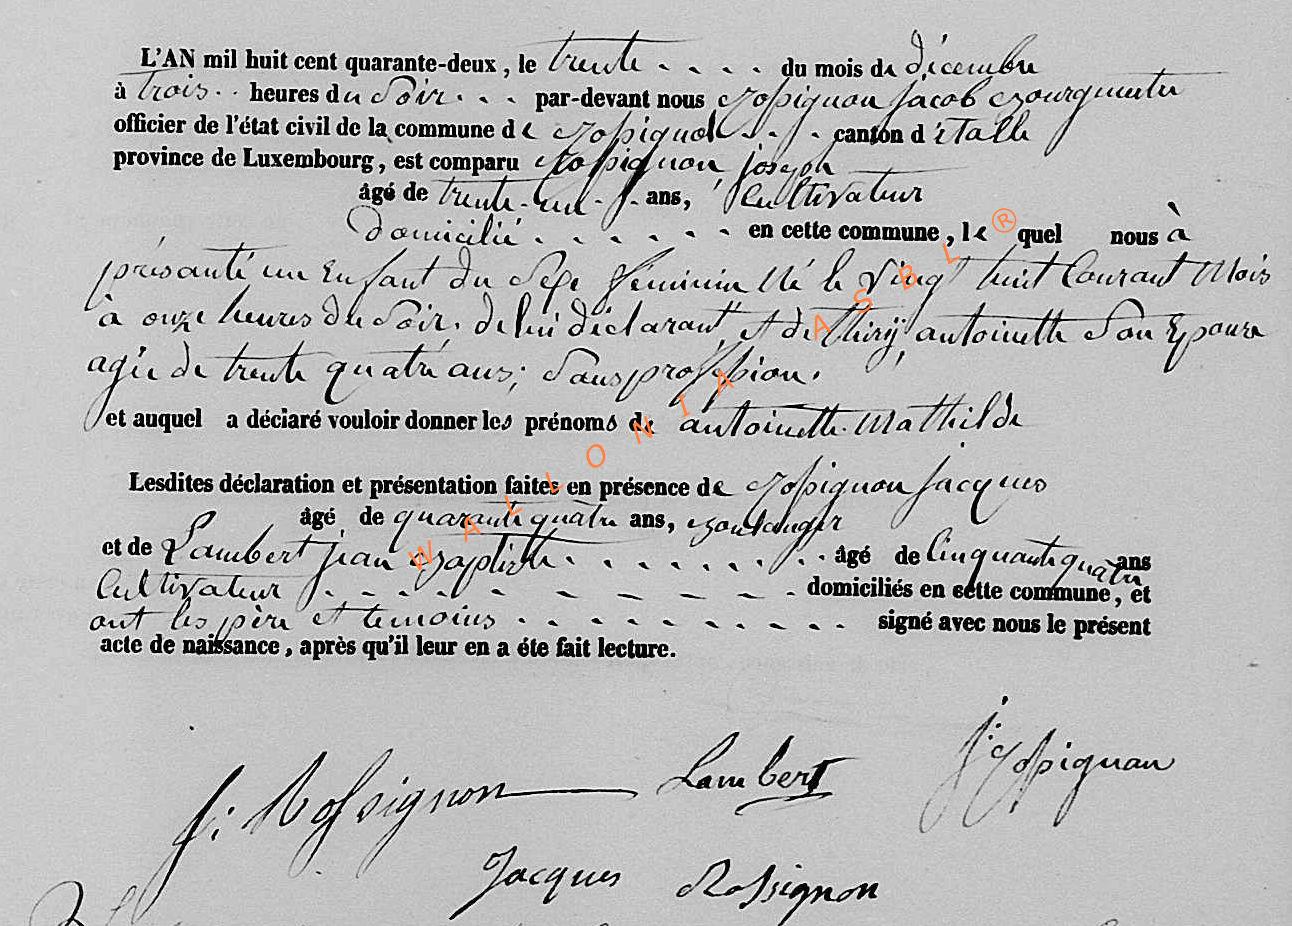 L'AN mil huit cent quarante-deux, le trente . . . . du mois de décembre
à trois . . heures du Soir . . . par-devant nous Rossignon jacob Bourgmestre
officier de l'état civil de la commune de Rossignol . . . canton d'étalle
province de Luxembourg, est comparu Rossignon joseph
âgé de trente-un . . ans, Cultivateur
domicilié . . . . . . en cette commune, lequel nous à
présanté un Enfant du Sexe féminin Né le vingt huit Courant Mois
à onze heures du Soir. de lui déclarant, et de thirÿ, antoinette Son Epouse
agée de trente quatre ans; Sans proffession.
et auquel a déclaré vouloir donner les prénoms de antoinette Mathilde
Lesdites déclaration et présentation faites en présence de Rossignon jacques
âgé de quarante quatre ans, Boulanger
et de Lambert jean Baptiste . . . . . . . . . âgé de Cinquante quatre ans
Cultivateur . - - - - - - - - - domiciliés en cette commune, et
ont les père et temoins . . . . . . . . . . signé avec nous le présent
acte de naissance, après qu'il leur en a éte fait lecture.
WALLONIA ASBL ®
j: Rossignon Lambert j: Rossignon
Jacques Rossignon